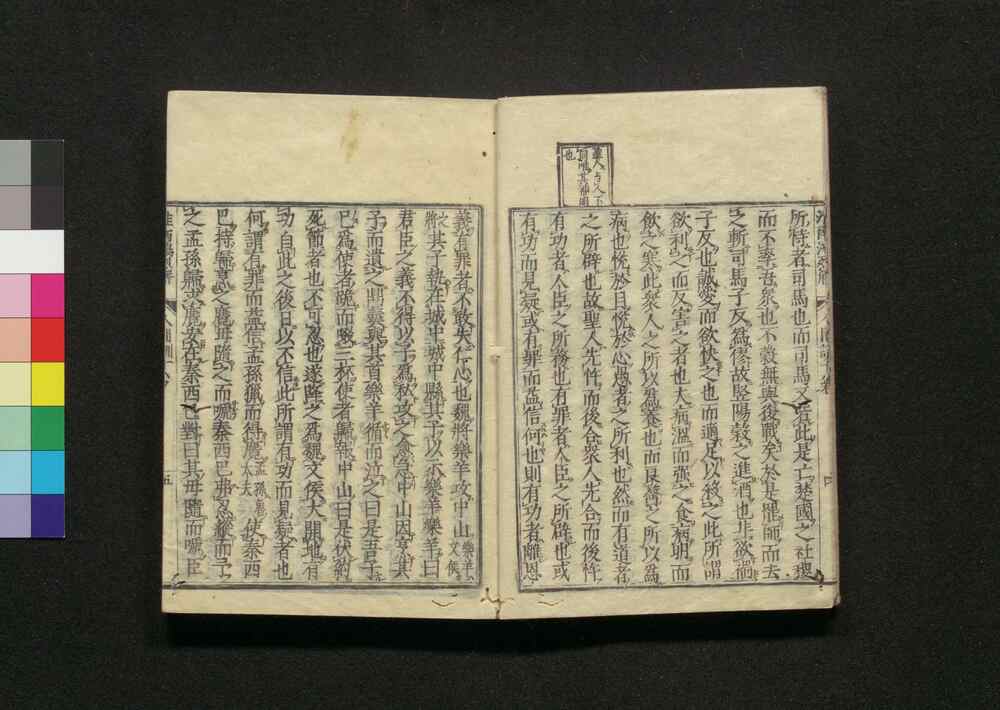 所恃者司馬也而司馬又若此是亡楚國之社稷
而不率吾衆也不穀無與復戰矣於是罷師而去
之斬司馬子反爲僇故豎陽穀之進酒也非欲禍
子反也誠愛而欲快之也而適足以殺之此所謂
欲利之而反害之者也夫病溫而强之食病暍而
飲之寒此衆人之所以爲養也而良醫之所以爲
病也悅於目悅於心愚者之所利也然而有道者
之所辟也故聖人先忤而後合衆人先合而後忤
有功者人臣之所務也有罪者人臣之所辟也或
有功而見疑或有罪而益信何也則有功者離恩
義有罪者不敢失仁心也魏將樂羊攻中山
其子執在城中城中縣其子以示樂羊樂羊曰
君臣之義不得以子爲私攻之愈急中山因烹其
子而遺之鼎羹與其首樂羊循而泣之曰是吾子
已爲使者跪而啜三杯使者歸報中山曰是伏約
死節者也不可忍也遂降之爲魏文侯大開地有
功自此之後日以不信此所謂有功而見疑者也
何謂有罪而益信孟孫獵而得麑使秦西
巴持歸烹之麑母隨之而啼秦西巴弗忍縱而予
之孟孫歸求麑安在秦西巴對曰其母隨而啼臣
五